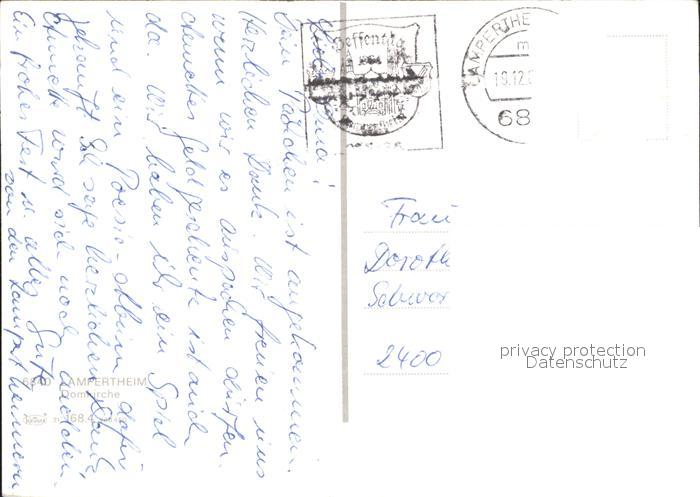 Dein Päckchen ist angekommen.
Herzlichen Dank. Wir freuen uns
wenn wir es auspacken dürfen.
Geldgeschenk ist auch
da. Wir haben ihr ein Spiel
und ein Poesie-Album dafür
gekauft. Sie sage herzlichen Dank
wird sich noch melden.
Ein frohes Fest u. alles Gute
von den Lampertheimern
Hessentag
LAMPERTHE
19.12.
68
Frau
Doroth
Schwar
2400
privacy protection
Datenschutz
6840 LAMPERTHEIM
Domkirche
168.4